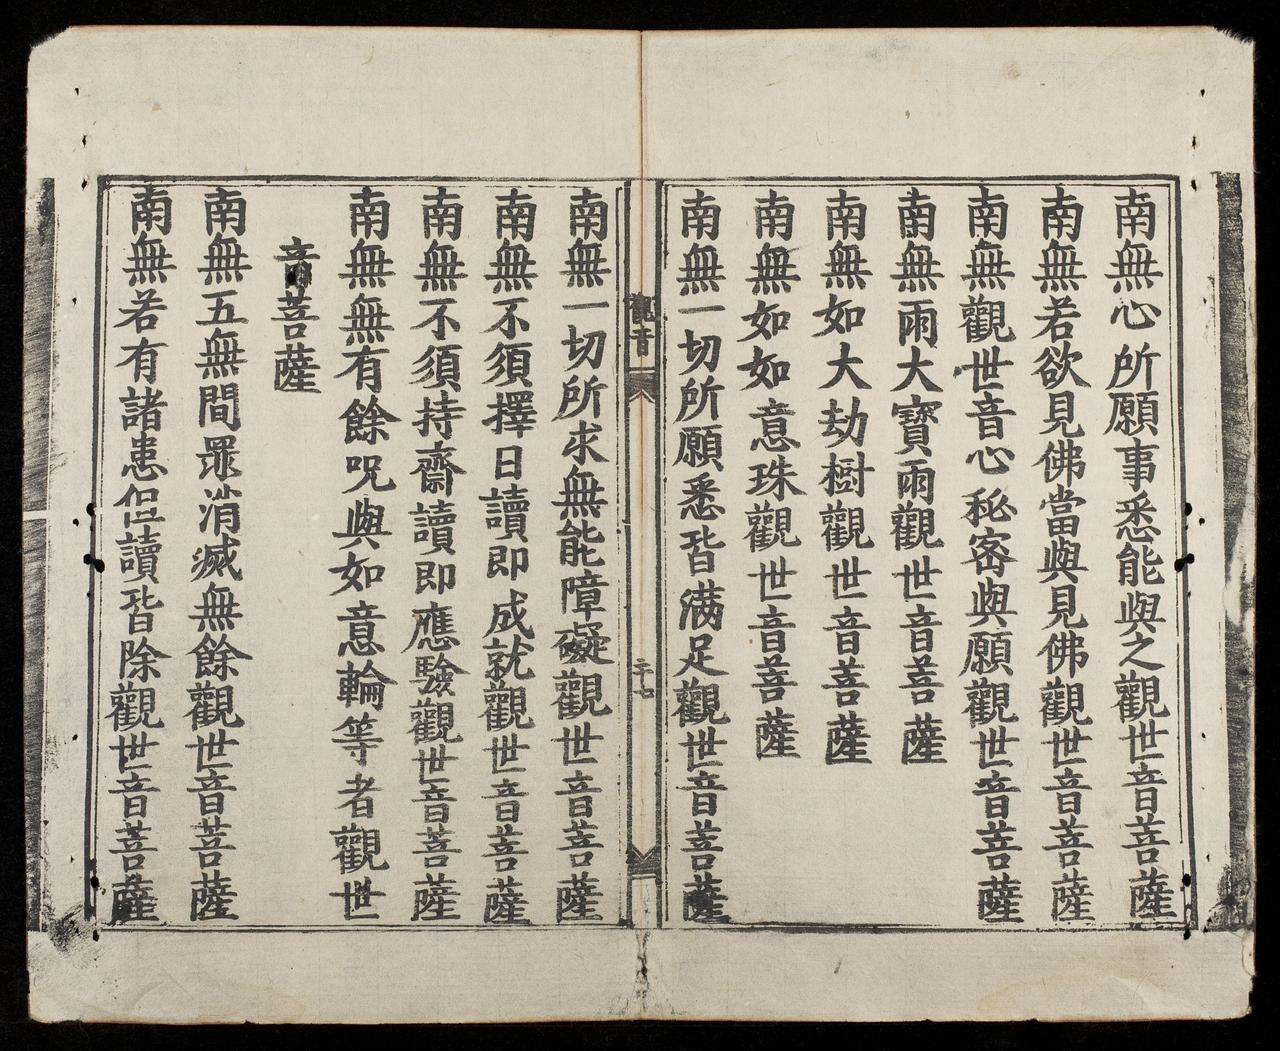 南無心所願事悉能與之觀世音菩薩
南無若欲見佛當與見佛觀世音菩薩
南無觀世音心秘密與願觀世音菩薩
南無雨大寶雨觀世音菩薩
南無如大劫樹觀世音菩薩
南無如如意珠觀世音菩薩
南無一切所願悉皆滿足觀世音菩薩
觀音
二十七
南無一切所求無能障礙觀世音菩薩
南無不須擇日讀即成就觀世音菩薩
南無不須持齋讀即應驗觀世音菩薩
南無無有餘呪與如意輪等者觀世
音菩薩
南無五無間罪消滅無餘觀世音菩薩
南無若有諸患但讀皆除觀世音菩薩